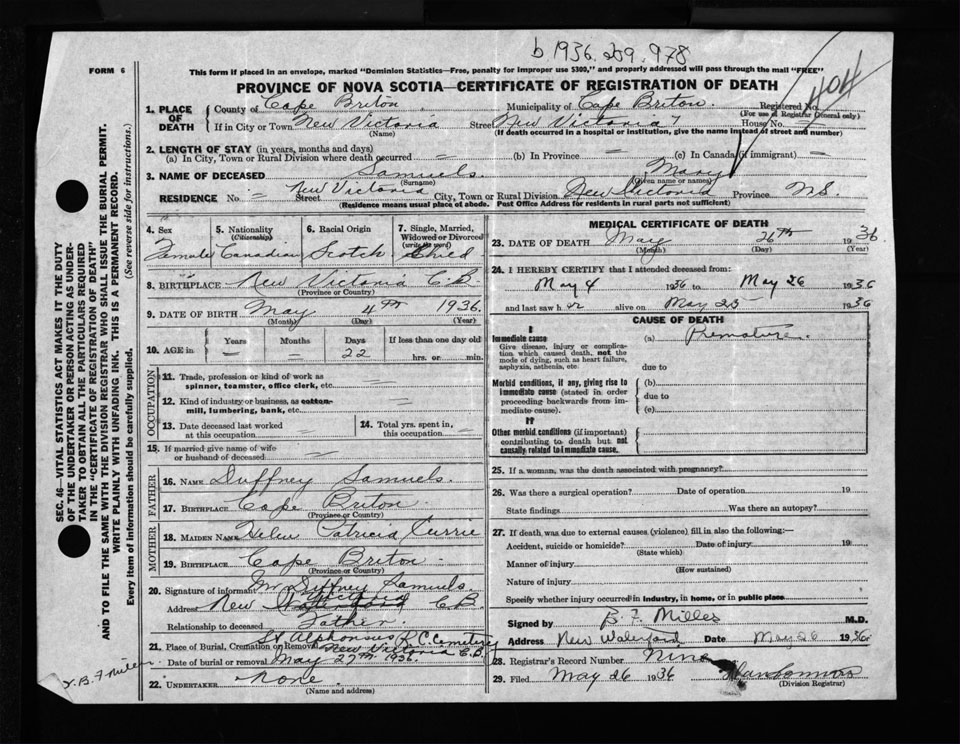 b 1936. 209. 978
FORM 6
This form if placed in an envelope, marked "Dominion Statistics—Free, penalty for improper use $300," and properly addressed will pass through the mail "FREE"
PROVINCE OF NOVA SCOTIA—CERTIFICATE OF REGISTRATION OF DEATH
404
1. PLACE OF DEATH
County of Cape Briton. Municipality of Cape Briton. Registered No.
(For use of Registrar General only)
If in City or Town New Victoria Street New Victoria House No.
(Name) (If death occurred in a hospital or institution, give the name instead of street and number)
2. LENGTH OF STAY (in years, months and days)
(a) In City, Town or Rural Division where death occurred = (b) In Province = (c) In Canada (if immigrant) =
3. NAME OF DECEASED Samuels. Mary
(Surname) (Given name or names)
RESIDENCE No. = New Victoria Street City, Town or Rural Division New Victoria Province N.S.
(Residence means usual place of abode. Post Office Address for residents in rural parts not sufficient)
4. Sex 5. Nationality (Citizenship) 6. Racial Origin 7. Single, Married, Widowed or Divorced (write the word)
Female Canadian Scotch Child
8. BIRTHPLACE New Victoria C.B.
(Province or Country)
9. DATE OF BIRTH May 4th 1936.
(Month) (Day) (Year)
10. AGE in Years Months Days If less than one day old
— — 22 hrs. or min.
OCCUPATION
11. Trade, profession or kind of work as
spinner, teamster, office clerk, etc. =
12. Kind of industry or business, as cotton-
mill, lumbering, bank, etc. =
13. Date deceased last worked
at this occupation =
14. Total yrs. spent in
this occupation =
15. If married give name of wife
or husband of deceased =
FATHER
16. NAME Duffney Samuels.
17. BIRTHPLACE Cape Briton
(Province or Country)
MOTHER
18. MAIDEN NAME Helen Patricia Currie
19. BIRTHPLACE Cape Briton
(Province or Country)
20. Signature of informant Mr Duffney Samuels.
Address New Victoria C.B.
Relationship to deceased Father.
21. Place of Burial, Cremation or Removal St Alphonsus R.C. Cemetery
New Victoria C.B.
Date of burial or removal May 27th 1936.
22. UNDERTAKER None
(Name and address)
MEDICAL CERTIFICATE OF DEATH
23. DATE OF DEATH May 26th 1936
(Month) (Day) (Year)
24. I HEREBY CERTIFY that I attended deceased from:
May 4 1936 to May 26 1936
and last saw her alive on May 25 1936
CAUSE OF DEATH
I
Immediate cause
Give disease, injury or complication which caused death, not the mode of dying, such as heart failure, asphyxia, asthenia, etc.
(a) Premature.
due to
Morbid conditions, if any, giving rise to immediate cause (stated in order proceeding backwards from immediate cause).
(b)
due to
(c)
II
Other morbid conditions (if important) contributing to death but not causally related to immediate cause.
25. If a woman, was the death associated with pregnancy?
26. Was there a surgical operation? Date of operation 19
State findings Was there an autopsy?
27. If death was due to external causes (violence) fill in also the following:—
Accident, suicide or homicide? Date of injury 19
(State which)
Manner of injury
(How sustained)
Nature of injury
Specify whether injury occurred in industry, in home, or in public place
Signed by B. F. Miller M.D.
Address New Waterford Date May 26 1936
28. Registrar's Record Number Nine
29. Filed May 26 1936
(Division Registrar)
SEC. 46—VITAL STATISTICS ACT MAKES IT THE DUTY
OF THE UNDERTAKER OR PERSON ACTING AS UNDER-
TAKER TO OBTAIN ALL THE PARTICULARS REQUIRED
IN THE "CERTIFICATE OF REGISTRATION OF DEATH"
AND TO FILE THE SAME WITH THE DIVISION REGISTRAR WHO SHALL ISSUE THE BURIAL PERMIT.
WRITE PLAINLY WITH UNFADING INK. THIS IS A PERMANENT RECORD.
Every item of information should be carefully supplied. (See reverse side for instructions.)
B. F. Miller